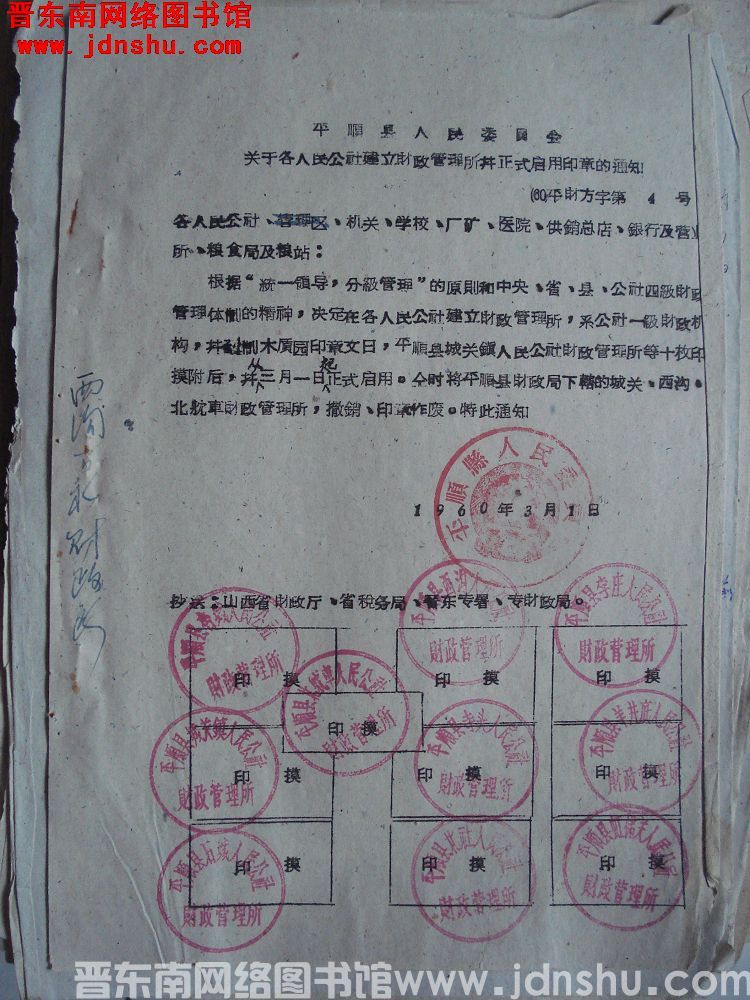 晋东南网络图书馆
www.jdnshu.com
平順县人民委員会
关于各人民公社建立財政管理所幷正式启用印章的通知
(60)平財方字第 4 号
各人民公社、管理区、机关、学校、厂矿、医院、供銷总店、銀行及营业
所、粮食局及粮站：
根据“統一領导，分級管理”的原則和中央、省、县、公社四級財政
管理体制的精神，决定在各人民公社建立財政管理所，系公社一級財政机
构，幷刻制木质园印章文曰，平順县城关鎮人民公社財政管理所等十枚印
摸附后，幷从三月一日起正式启用。仝时将平順县財政局下轄的城关、西沟、
北耽車財政管理所，撤銷、印章作废。特此通知
平順縣人民委
1960年3月1日
抄送：山西省財政厅、省税务局、晋东专署、专財政局。
財政管理所
印 摸
平順县西沟人
財政管理所
印 摸
平順县李庄人民公社
財政管理所
印 摸
人民公社
財政管理所
印 摸
平順县城关鎮人民公社
財政管理所
印 摸
平順县寺头人民公社
財政管理所
印 摸
平順县
財政管理所
印 摸
平順县石城人民公社
財政管理所
印 摸
平順县北社人民公社
財政管理所
印 摸
平順县虹梯关人民公社
財政管理所
印 摸
晋东南网络图书馆www.jdnshu.com